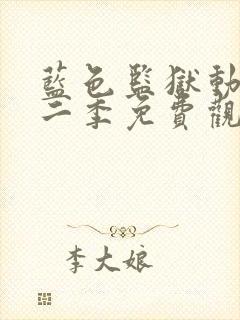 藍色監獄動
二季免費觀
李大娘